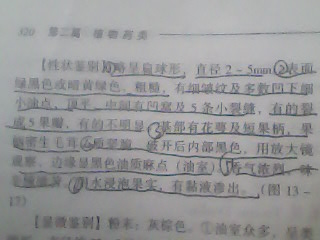 320 第二篇 植物药类
【性状鉴别】①略呈扁球形，直径2～5mm②表面
绿黑色或暗黄绿色，粗糙，有细皱纹及多数凹下细
小油点，顶平，中间有凹窝及5条小裂缝，有的裂
成5果瓣，有的不明显③基部有花萼及短果柄，果
密生毛茸④质坚脆，破开后内部黑色，用放大镜
观察，边缘显黑色油质麻点（油室）⑤香气浓烈，
⑥以水浸泡果实，有黏液渗出。（图13－
17）
【显微鉴别】粉末：灰棕色。①油室众多，呈